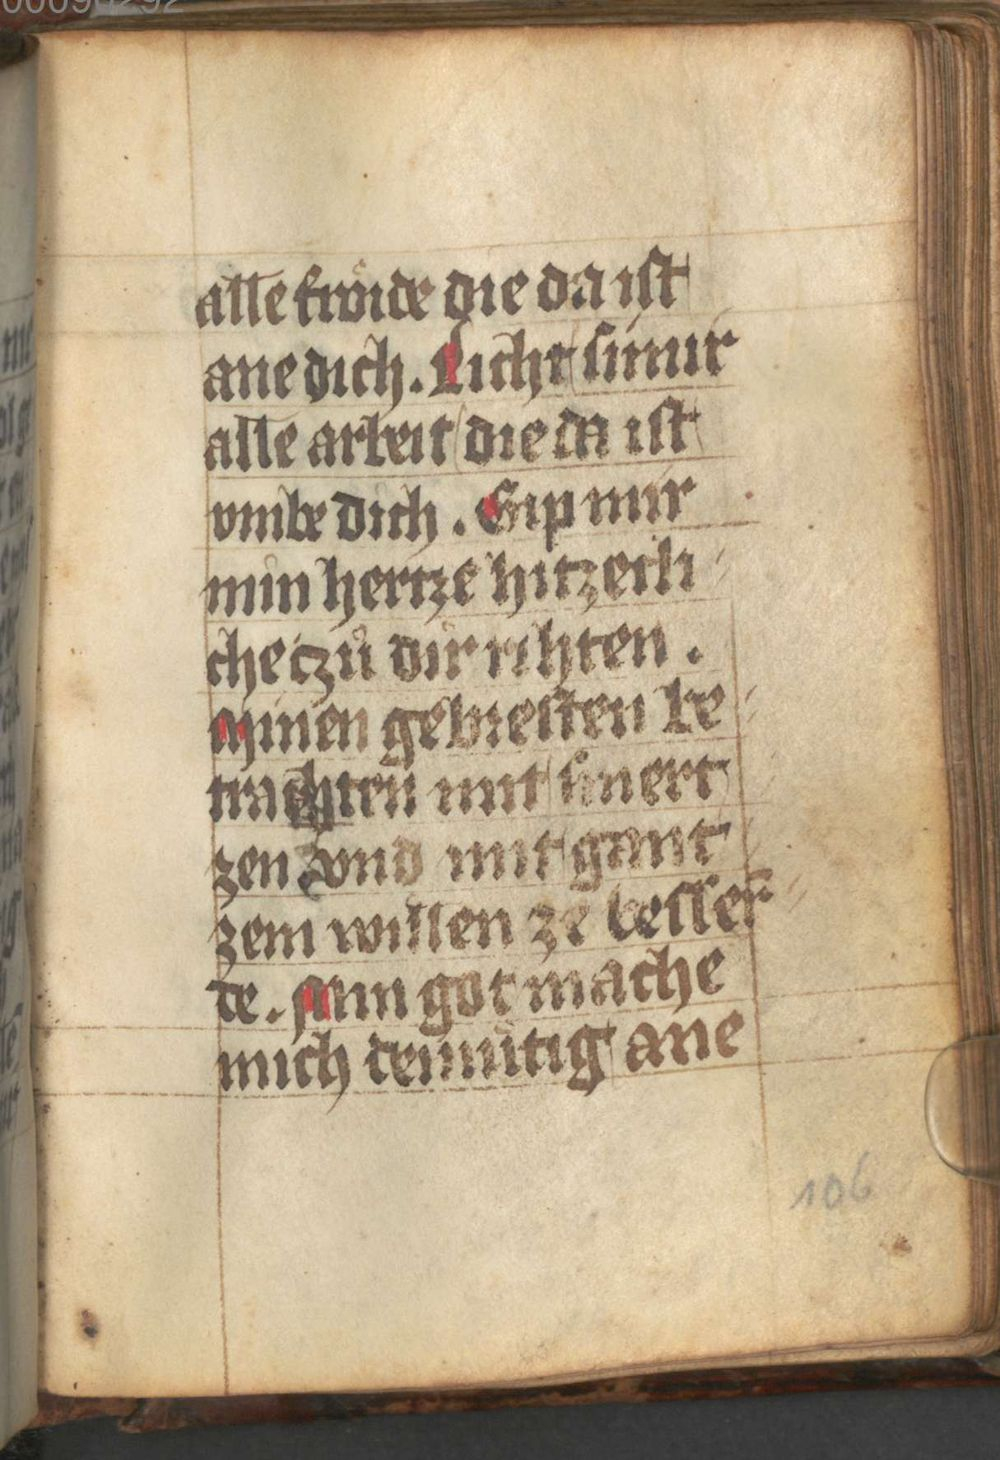 alle froͤide die da ist
ane dich. Licht si mir
alle arbeit die da ist
vmbe dich. Gip mir
min hertze hitzecli
che czuͦ dir rihten.
Minen gebresten be
trachten mit smert
zen vnd mit gant
zem willen ze besser
de. Min got mache
mich demuͤtig ane
106